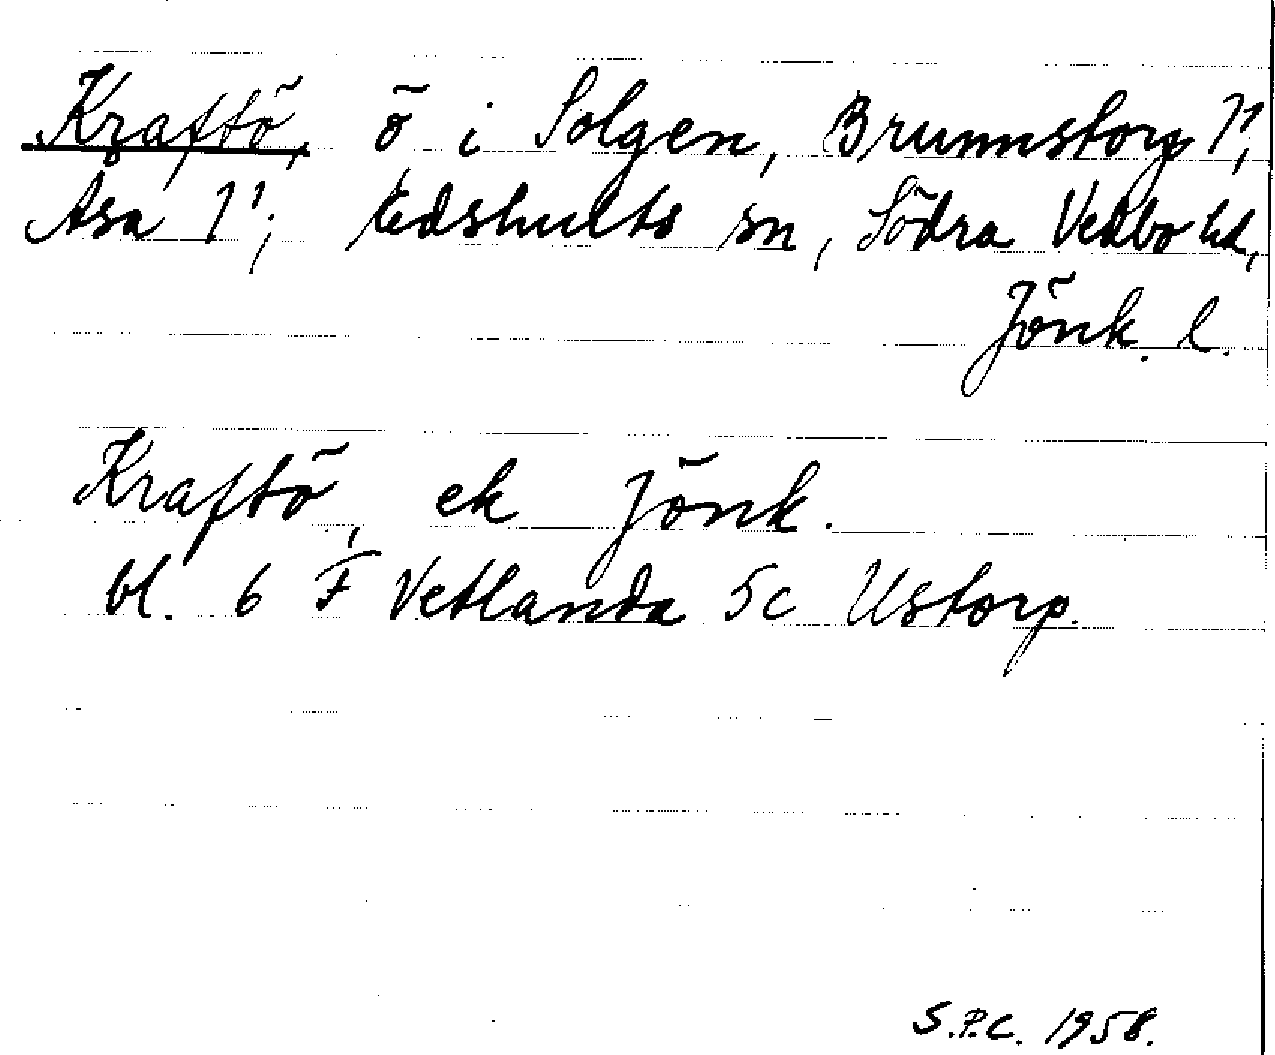 Kraftö, ö i Solgen, Brunnstorp 1¹,
Åsa 1¹; Edshults sn, Södra Vedbo hd,
Jönk. l.
Kraftö, ek Jönk.
bl. 6 F Vetlanda 5c Ustorp.
S.P.C. 1958.